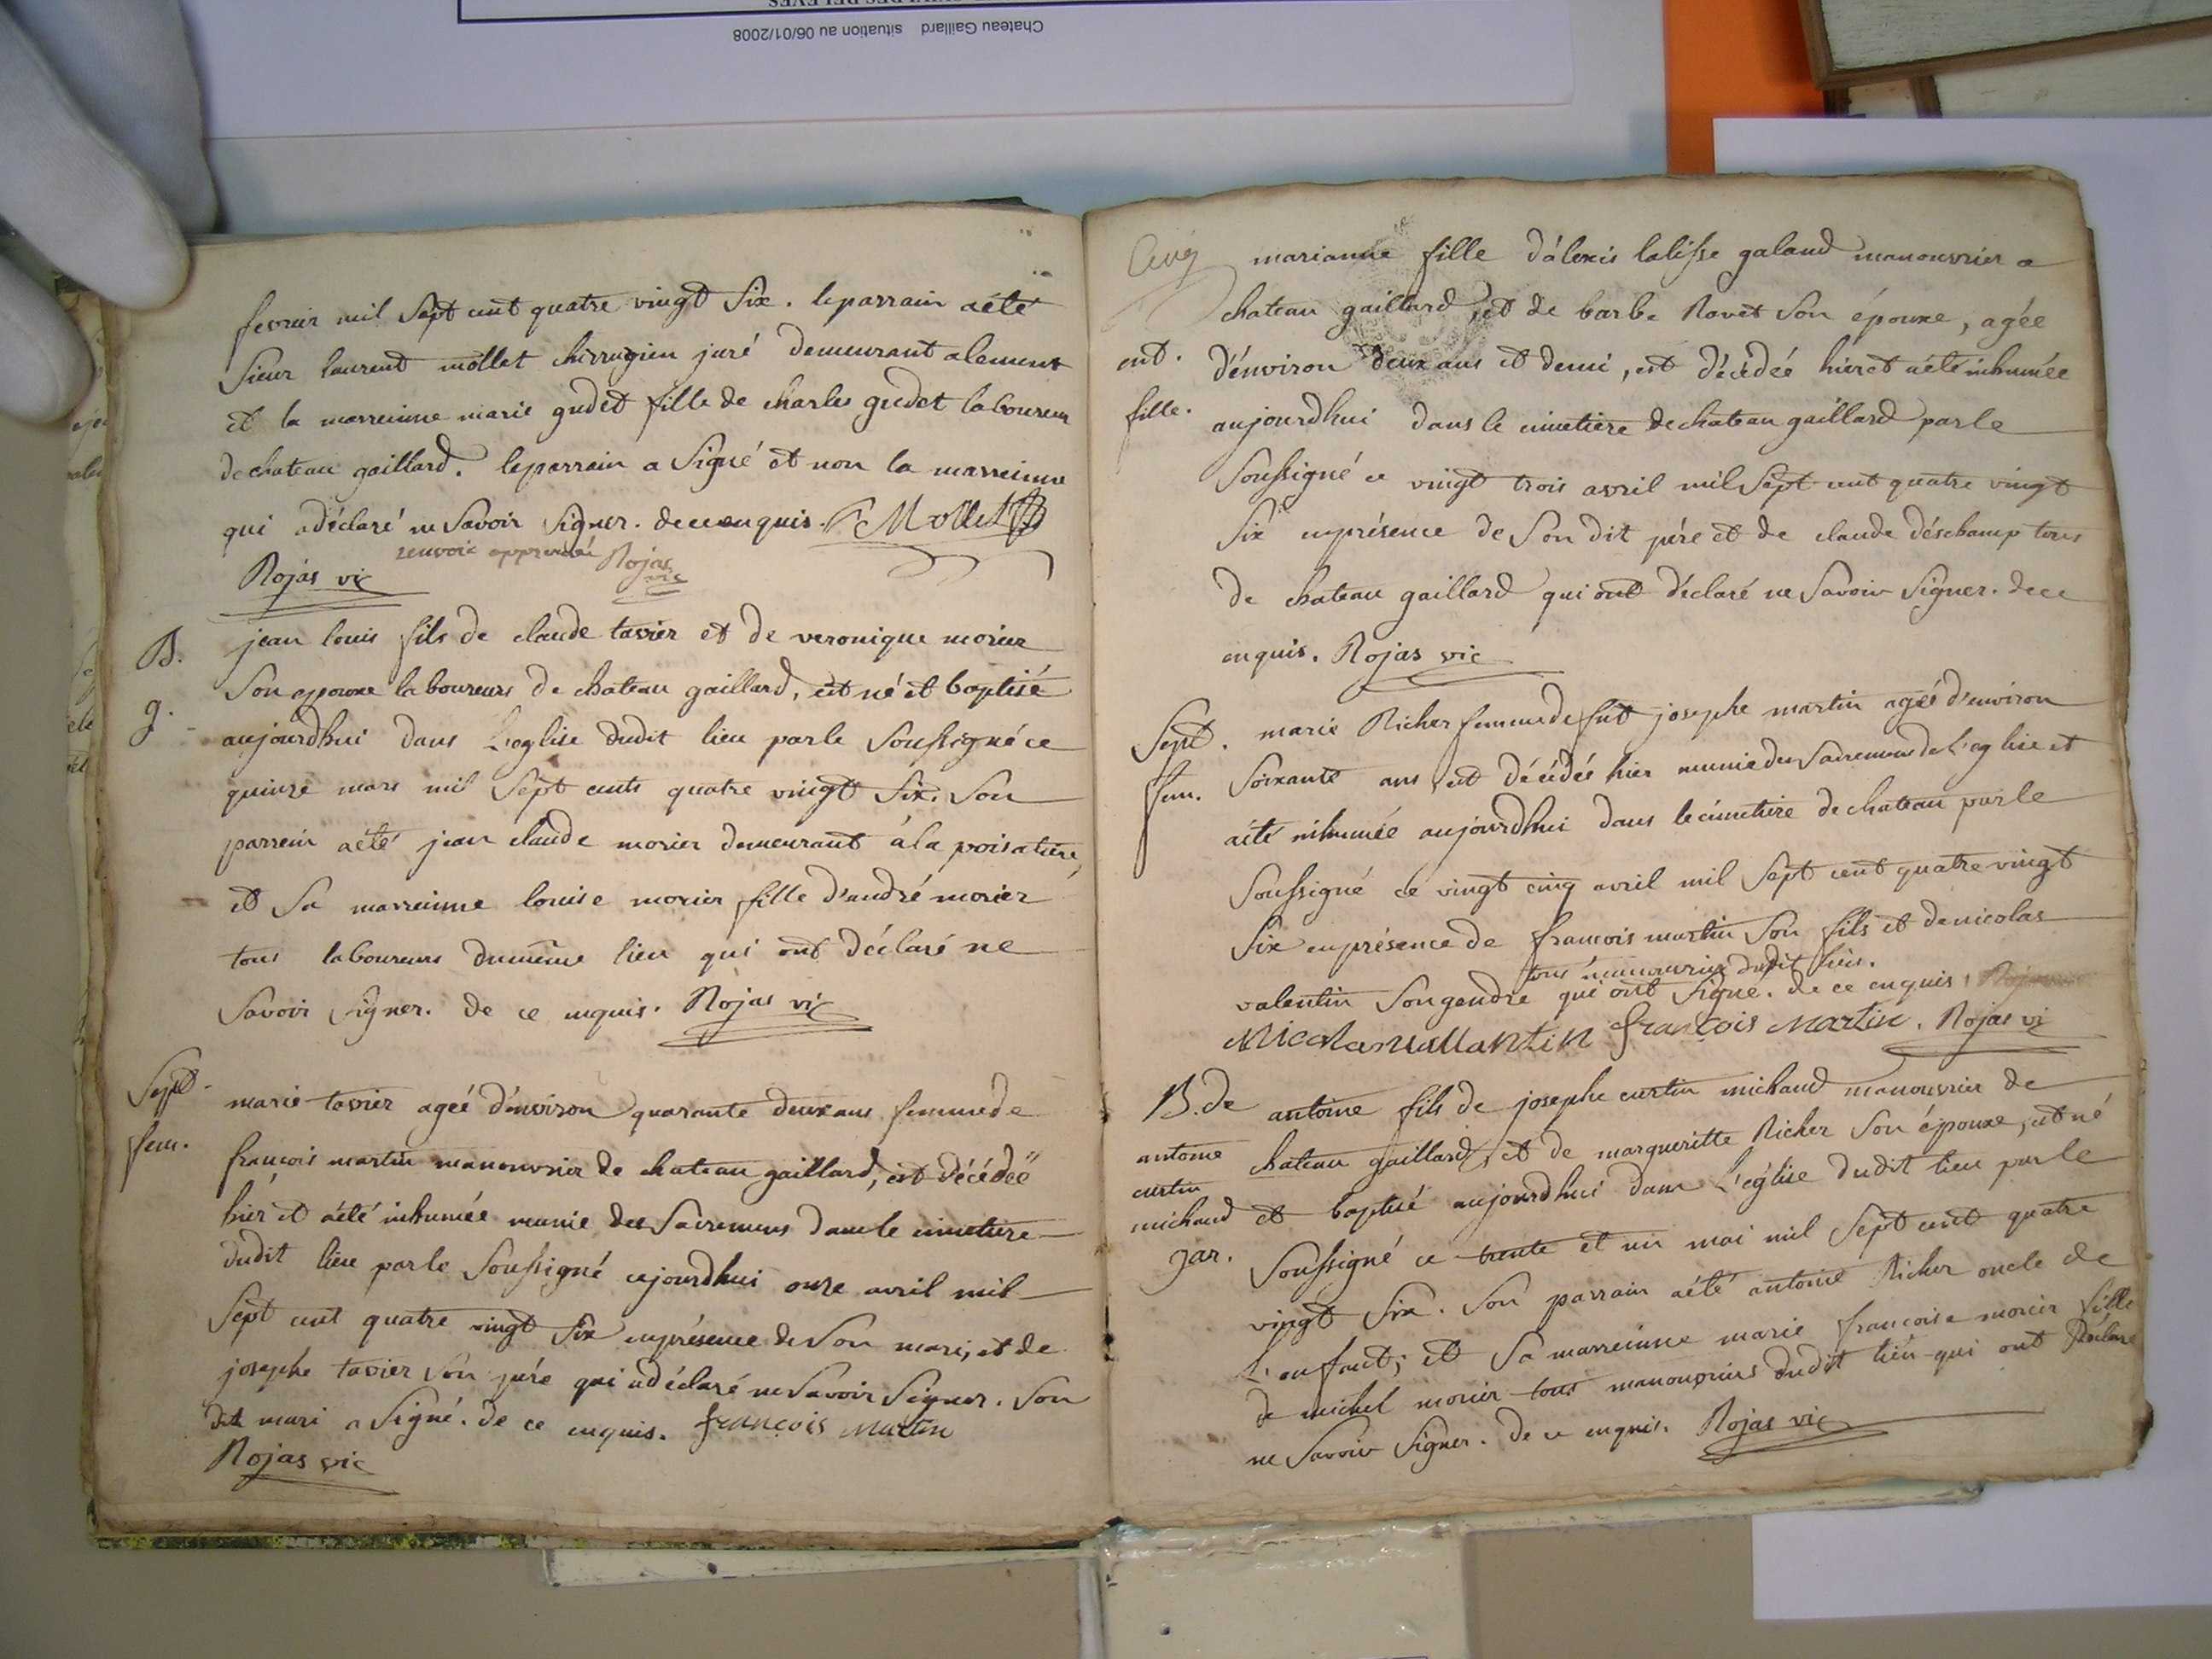 Chateau Gaillard situation au 06/01/2008
fevrier mil Sept cent quatre vingt Six. le parrain a été
Sieur laurent mollet chirrugien juré demeurant a lement
et la marreinne marie gudet fille de charles gudet laboureur
de chateau gaillard. le parrain a Signé et non la marreinne
qui a déclaré ne Savoir Signer. de ce enquis. Mollet
renvoie approuvé Rojas vic
Rojas vic
B. jean louis fils de claude tavier et de veronique morier
Son epouxe laboureurs de chateau gaillard, est né et baptisé
g. aujourdhui dans L'eglise dudit lieu par le Soussigné ce
quinze mars mil Sept cents quatre vingt Six. Son
parrein a été jean claude morier demeurant à la poisatiere,
et Sa marreinne louise morier fille d'andré morier
tous laboureurs du même lieu qui ont déclaré ne
Savoir Signer. de ce enquis. Rojas vic
Sept. marie tavier ageé d'environ quarante deux ans femme de
fem. françois martin manouvrier de chateau gaillard, est décédeé
hiér et a été inhumée munie des Sacremens dans le cimetiere
dudit lieu par le Soussigné cejourdhui onze avril mil
Sept cent quatre vingt Six en présence de Son mari, et de
josephe tavier Son pére qui a déclaré ne Savoir Signer. Son
dit mari a Signé. de ce enquis. françois martin
Rojas vic
marianne fille d'alexis lalisse galand manouvrier a
chateau gaillard, et de barbe Rovet Son épouxe, agée
ent. d'environ deux ans et demi, est décédeé hier et a été inhumée
fille. aujourdhui dans le cimetiere de chateau gaillard par le
Soussigné ce vingt trois avril mil Sept cent quatre vingt
Six en présence de Son dit pére et de claude déschamp tous
de chateau gaillard qui ont déclaré ne Savoir Signer. de ce
enquis. Rojas vic
Sept. marie Richer femme de fut josephe martin ageé d'environ
fem. Soixante ans est décédeé hier munie des Sacremens de L'eglise et
a été inhumée aujourdhui dans le cimetiere de chateau par le
Soussigné ce vingt cinq avril mil Sept cent quatre vingt
Six en présence de francois martin Son fils et de nicolas
tous manouvrier dudit lieu.
valentin Son gendre qui ont Signe. de ce enquis.
Nicolas vallantin françois martin. Rojas vi
B. de antoine fils de josephe curtin michaud manouvrier de
antoine chateau gaillard, et de margueritte Richer Son épouxe, est né
curtin
michaud et baptisé aujourdhui dans L'eglise dudit lieu par le
gar. Soussigné ce trente et un mai mil Sept cent quatre
vingt Six. Son parrain a été antoine Richer oncle de
L'enfant; et Sa marreinne marie francoise morier fille
de michel morier tous manouvriers dudit lieu qui ont déclaré
ne Savoir Signer. de ce enquis. Rojas vic